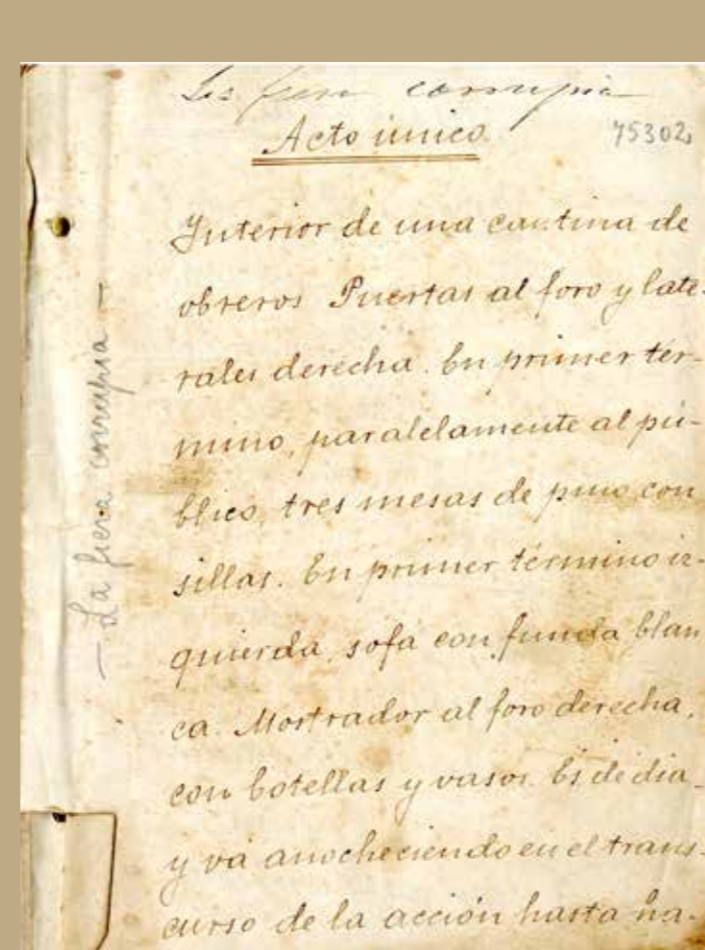 La fiera corrupia
Acto único.
75302
Interior de una cantina de
obreros Puertas al foro y late-
rales derecha. En primer tér-
mino, paralelamente al pú-
blico, tres mesas de pino con
sillas. En primer término iz-
quierda, sofá con funda blan
ca. Mostrador al foro derecha,
con botellas y vasos. Es de dia
y vá anocheciendo en el trans-
curso de la acción hasta ha-
— La fiera corrupia —